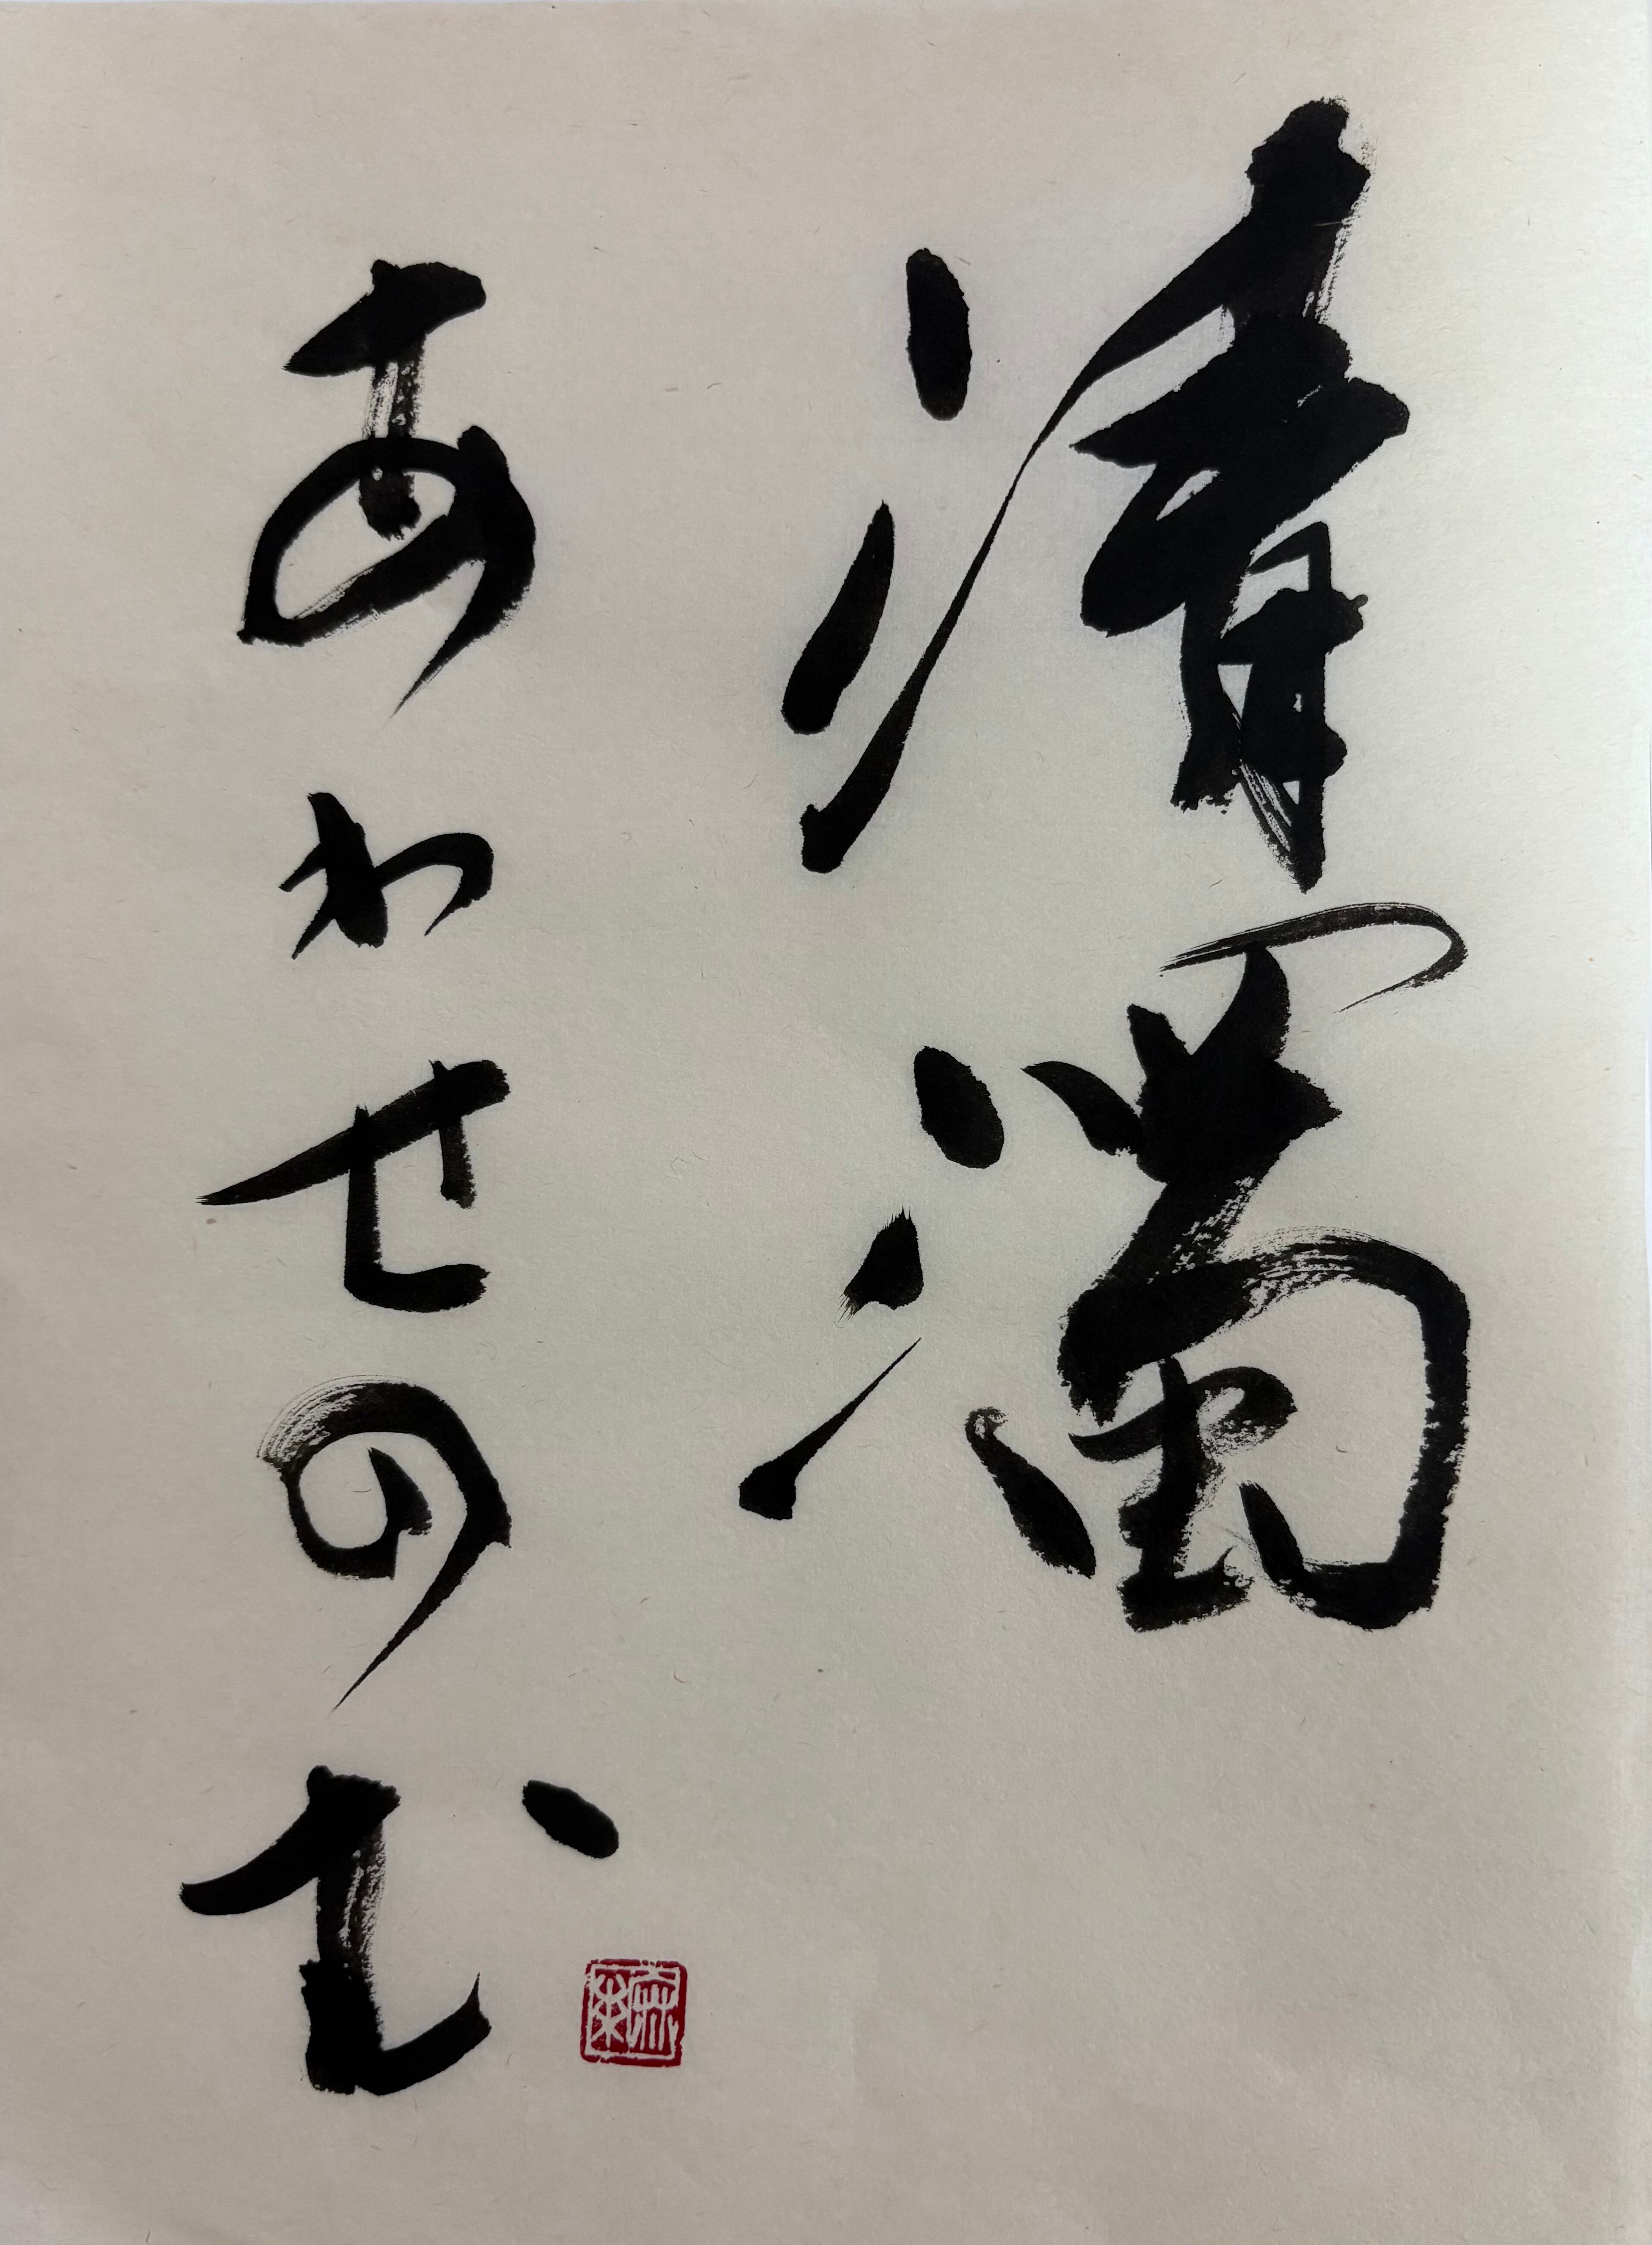 清濁
あわせのむ